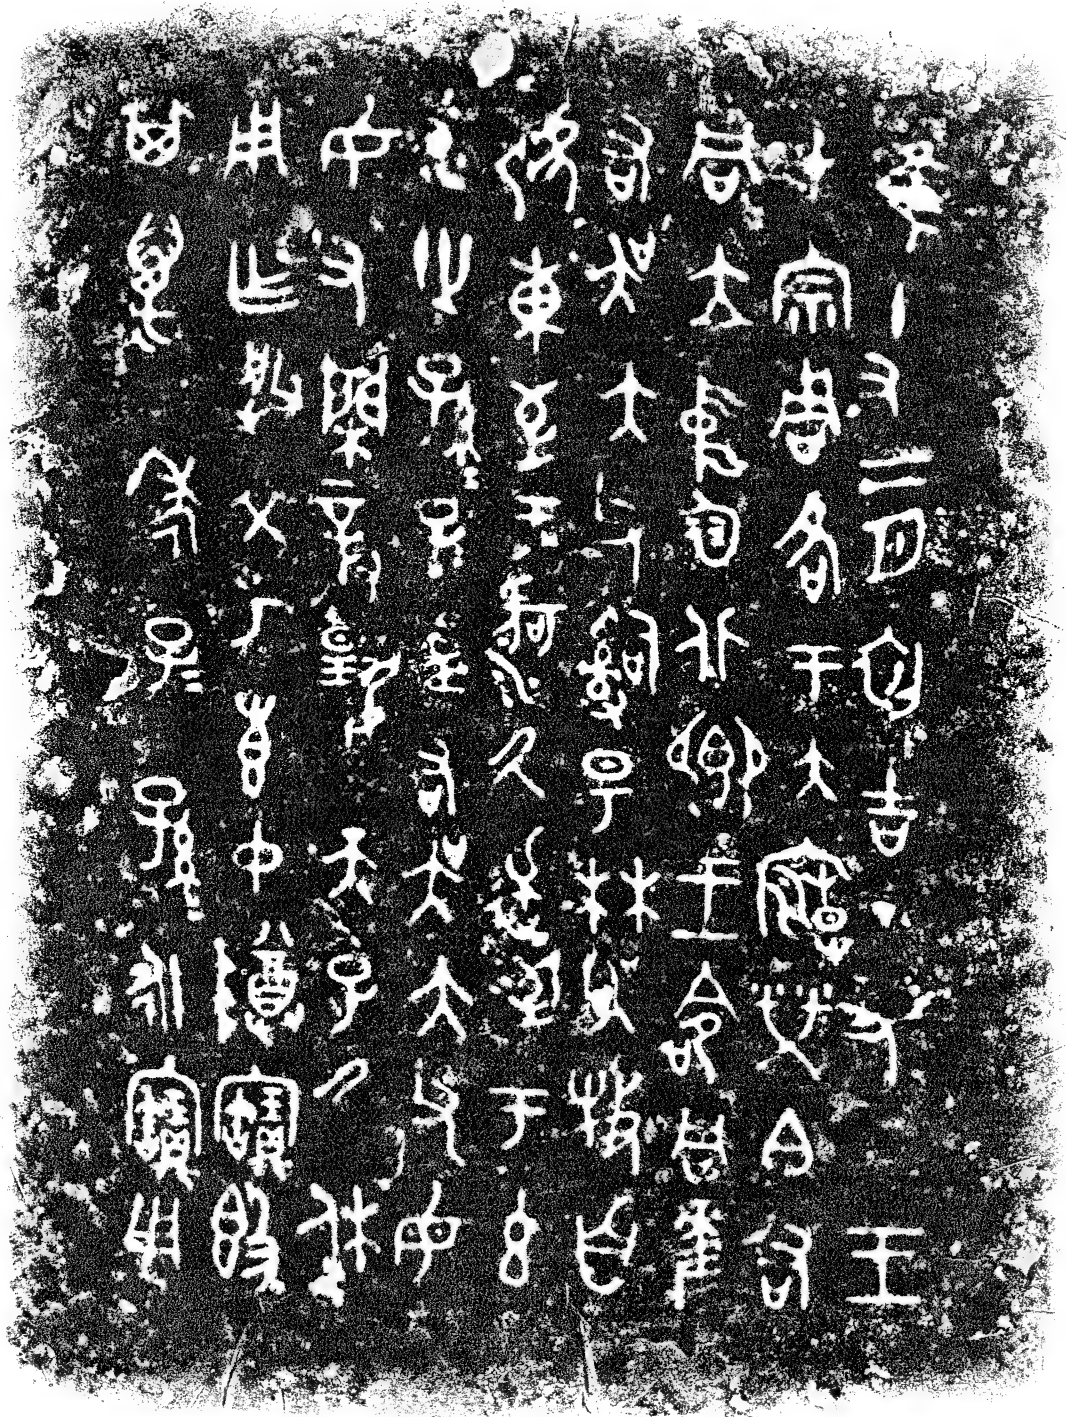 隹十又二月初吉丁丑王
才宗周各于大廟㷼白右
同立中廷北鄉王命同差
右吳大父𤔲昜林吳牧自
淲東至于河氒逆至于玄
水世孫孫子子差右吳大父母
女又閑對揚天子氒休
用乍朕文丂叀中尊寶簋
其萬年子子孫孫永寶用